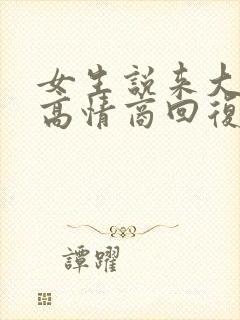 女生說來大
高情商回復
譚躍